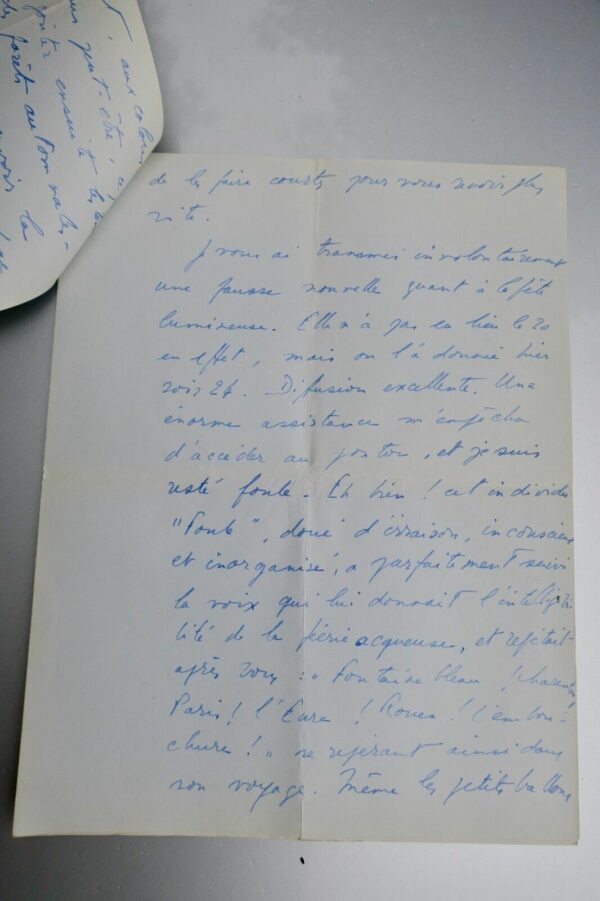 aux
peut-être,
ensuite les
forêt au Pom
la
de les faire courts pour vous revoir plus
vite.
Je vous ai transmis involontairement
une fausse nouvelle quant à la fête
lumineuse. Elle n'a pas eu lieu le 20
en effet, mais on l'a donnée hier
soir 24. Difusion excellente. Une
énorme assistance m'empêcha
d'accéder au ponton, et je suis
resté foule. Eh bien ! cet individu
"Foule", doué d'irraison, inconscient
et inorganisé, a parfaitement suivi
la voix qui lui donnait l'intelligibi
lité de la féerie acqueuse, et répétait
après vous : " Fontainebleau ! Charenton !
Paris ! l'Eure ! Rouen ! l'embou-
chure ! " se repérant ainsi dans
son voyage. Même les petits ballons